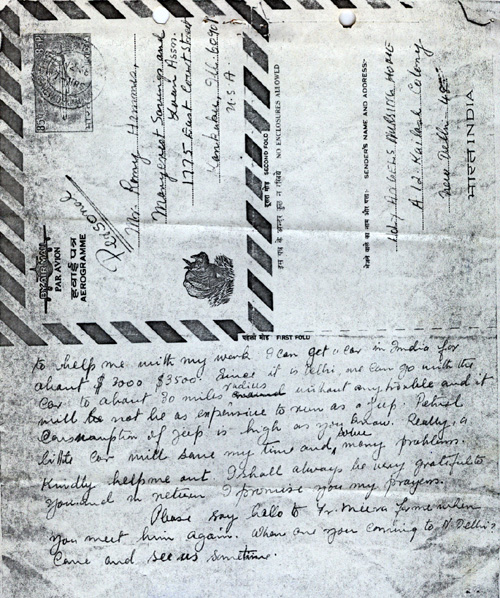 BY AIR MAIL
PAR AVION
हवाई पत्र
AEROGRAMME
Personal
Mr. Romy Hammes,
Manyenest Savings and
Loan Assn.
1775 East Court Street
Kankakee, Ill. 60901
U.S.A.
दूसरा मोड़ SECOND FOLD
इस पत्र के अन्दर कुछ न रखिये NO ENCLOSURES ALLOWED
भेजने वाले का नाम और पता:- SENDER'S NAME AND ADDRESS:-
HOLY ANGELS NURSING HOME
A 12 Kailash Colony
New Delhi - 48
भारत INDIA
पहला मोड़ FIRST FOLD
to help me with my work I can get a car in India for
about $ 3000 $3500. Since it is Delhi, we can go with the
car to about 30 miles radius without any trouble and it
will not be as expensive to run as a Jeep. Petrol
Consumption of Jeep is high as you know. Really, a
little car will save my time and solve many problems.
Kindly help me out. I shall always be very grateful to
you and in return I promise you my prayers.
Please say hello to Fr. Meera for me when
you meet him again. When are you coming to N. Delhi?
Come and see us sometime.